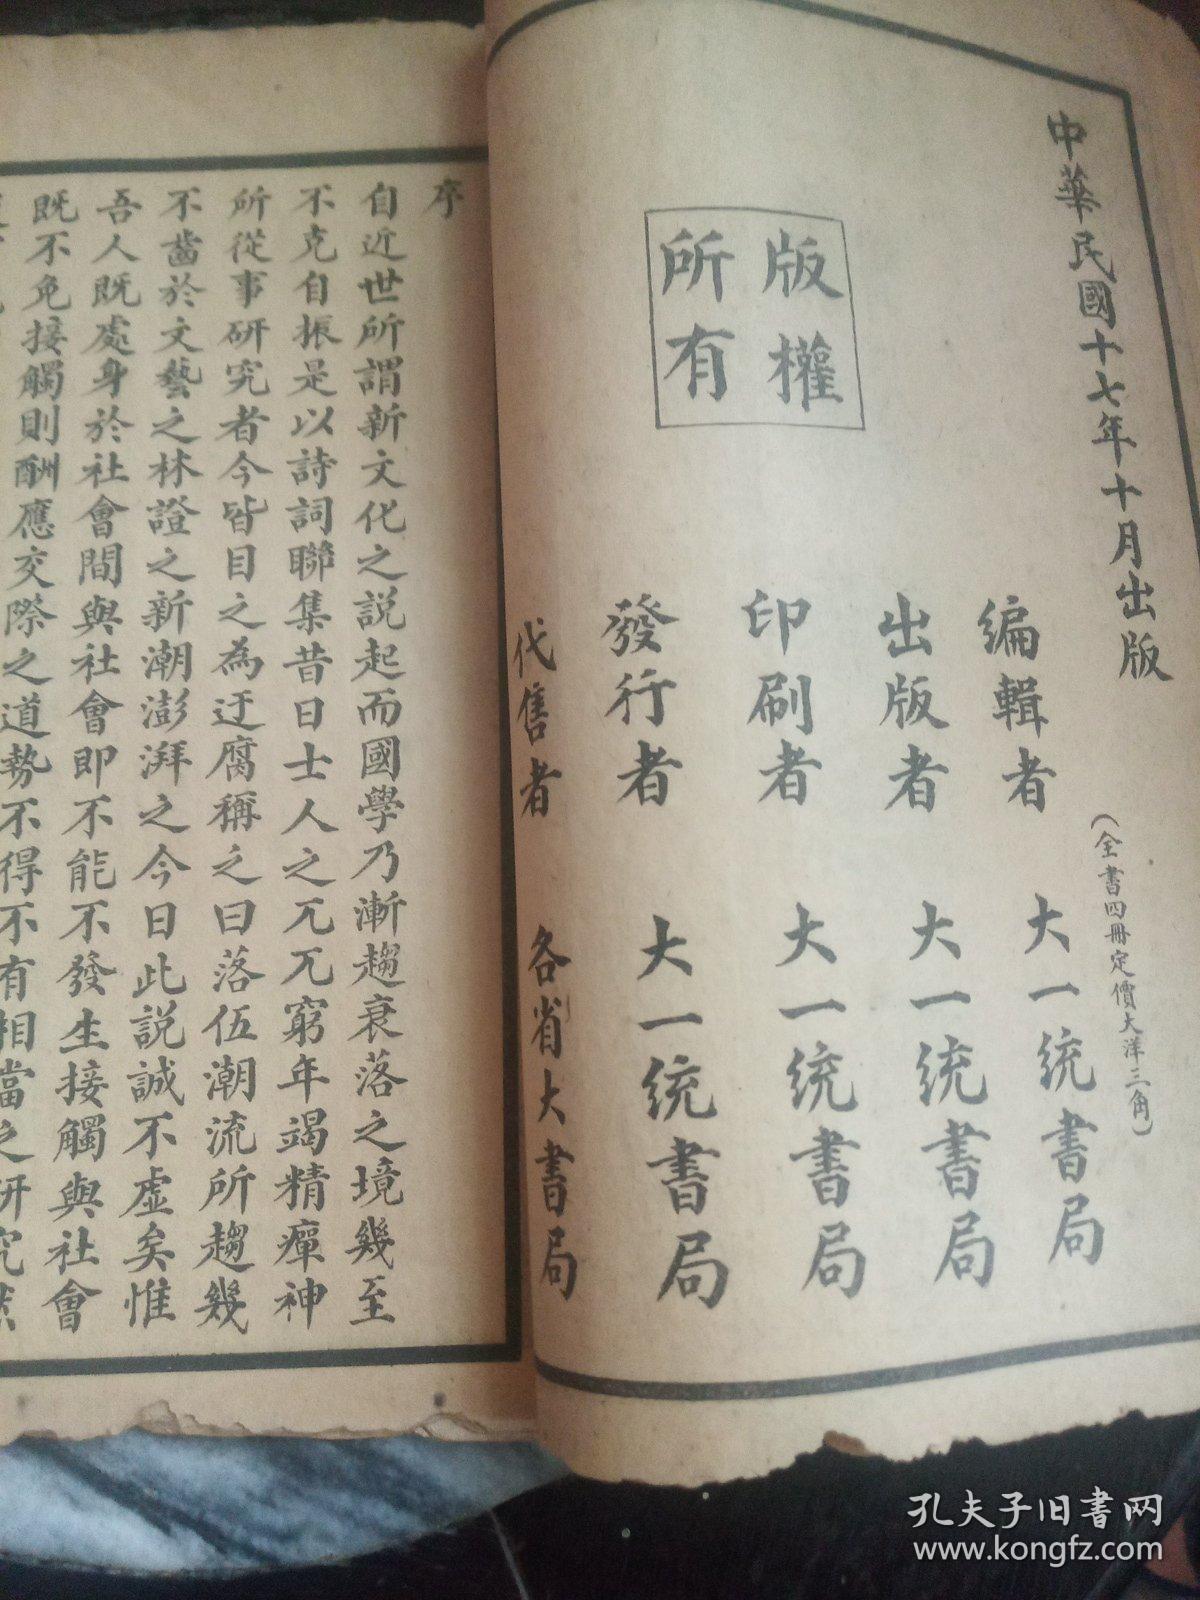 中華民國十七年十月出版
(全書四冊定價大洋三角)
版權
所有
編輯者 大一統書局
出版者 大一統書局
印刷者 大一統書局
發行者 大一統書局
代售者 各省大書局
序
自近世所謂新文化之說起而國學乃漸趨衰落之境幾至
不克自振是以詩詞聯集昔日士人之兀兀窮年竭精癉神
所從事研究者今皆目之為迂腐稱之曰落伍潮流所趨幾
不齒於文藝之林證之新潮澎湃之今日此說誠不虛矣惟
吾人既處身於社會間與社會即不能不發生接觸與社會
既不免接觸則酬應交際之道勢不得不有相當之研究然
孔夫子旧书网
www.kongfz.com